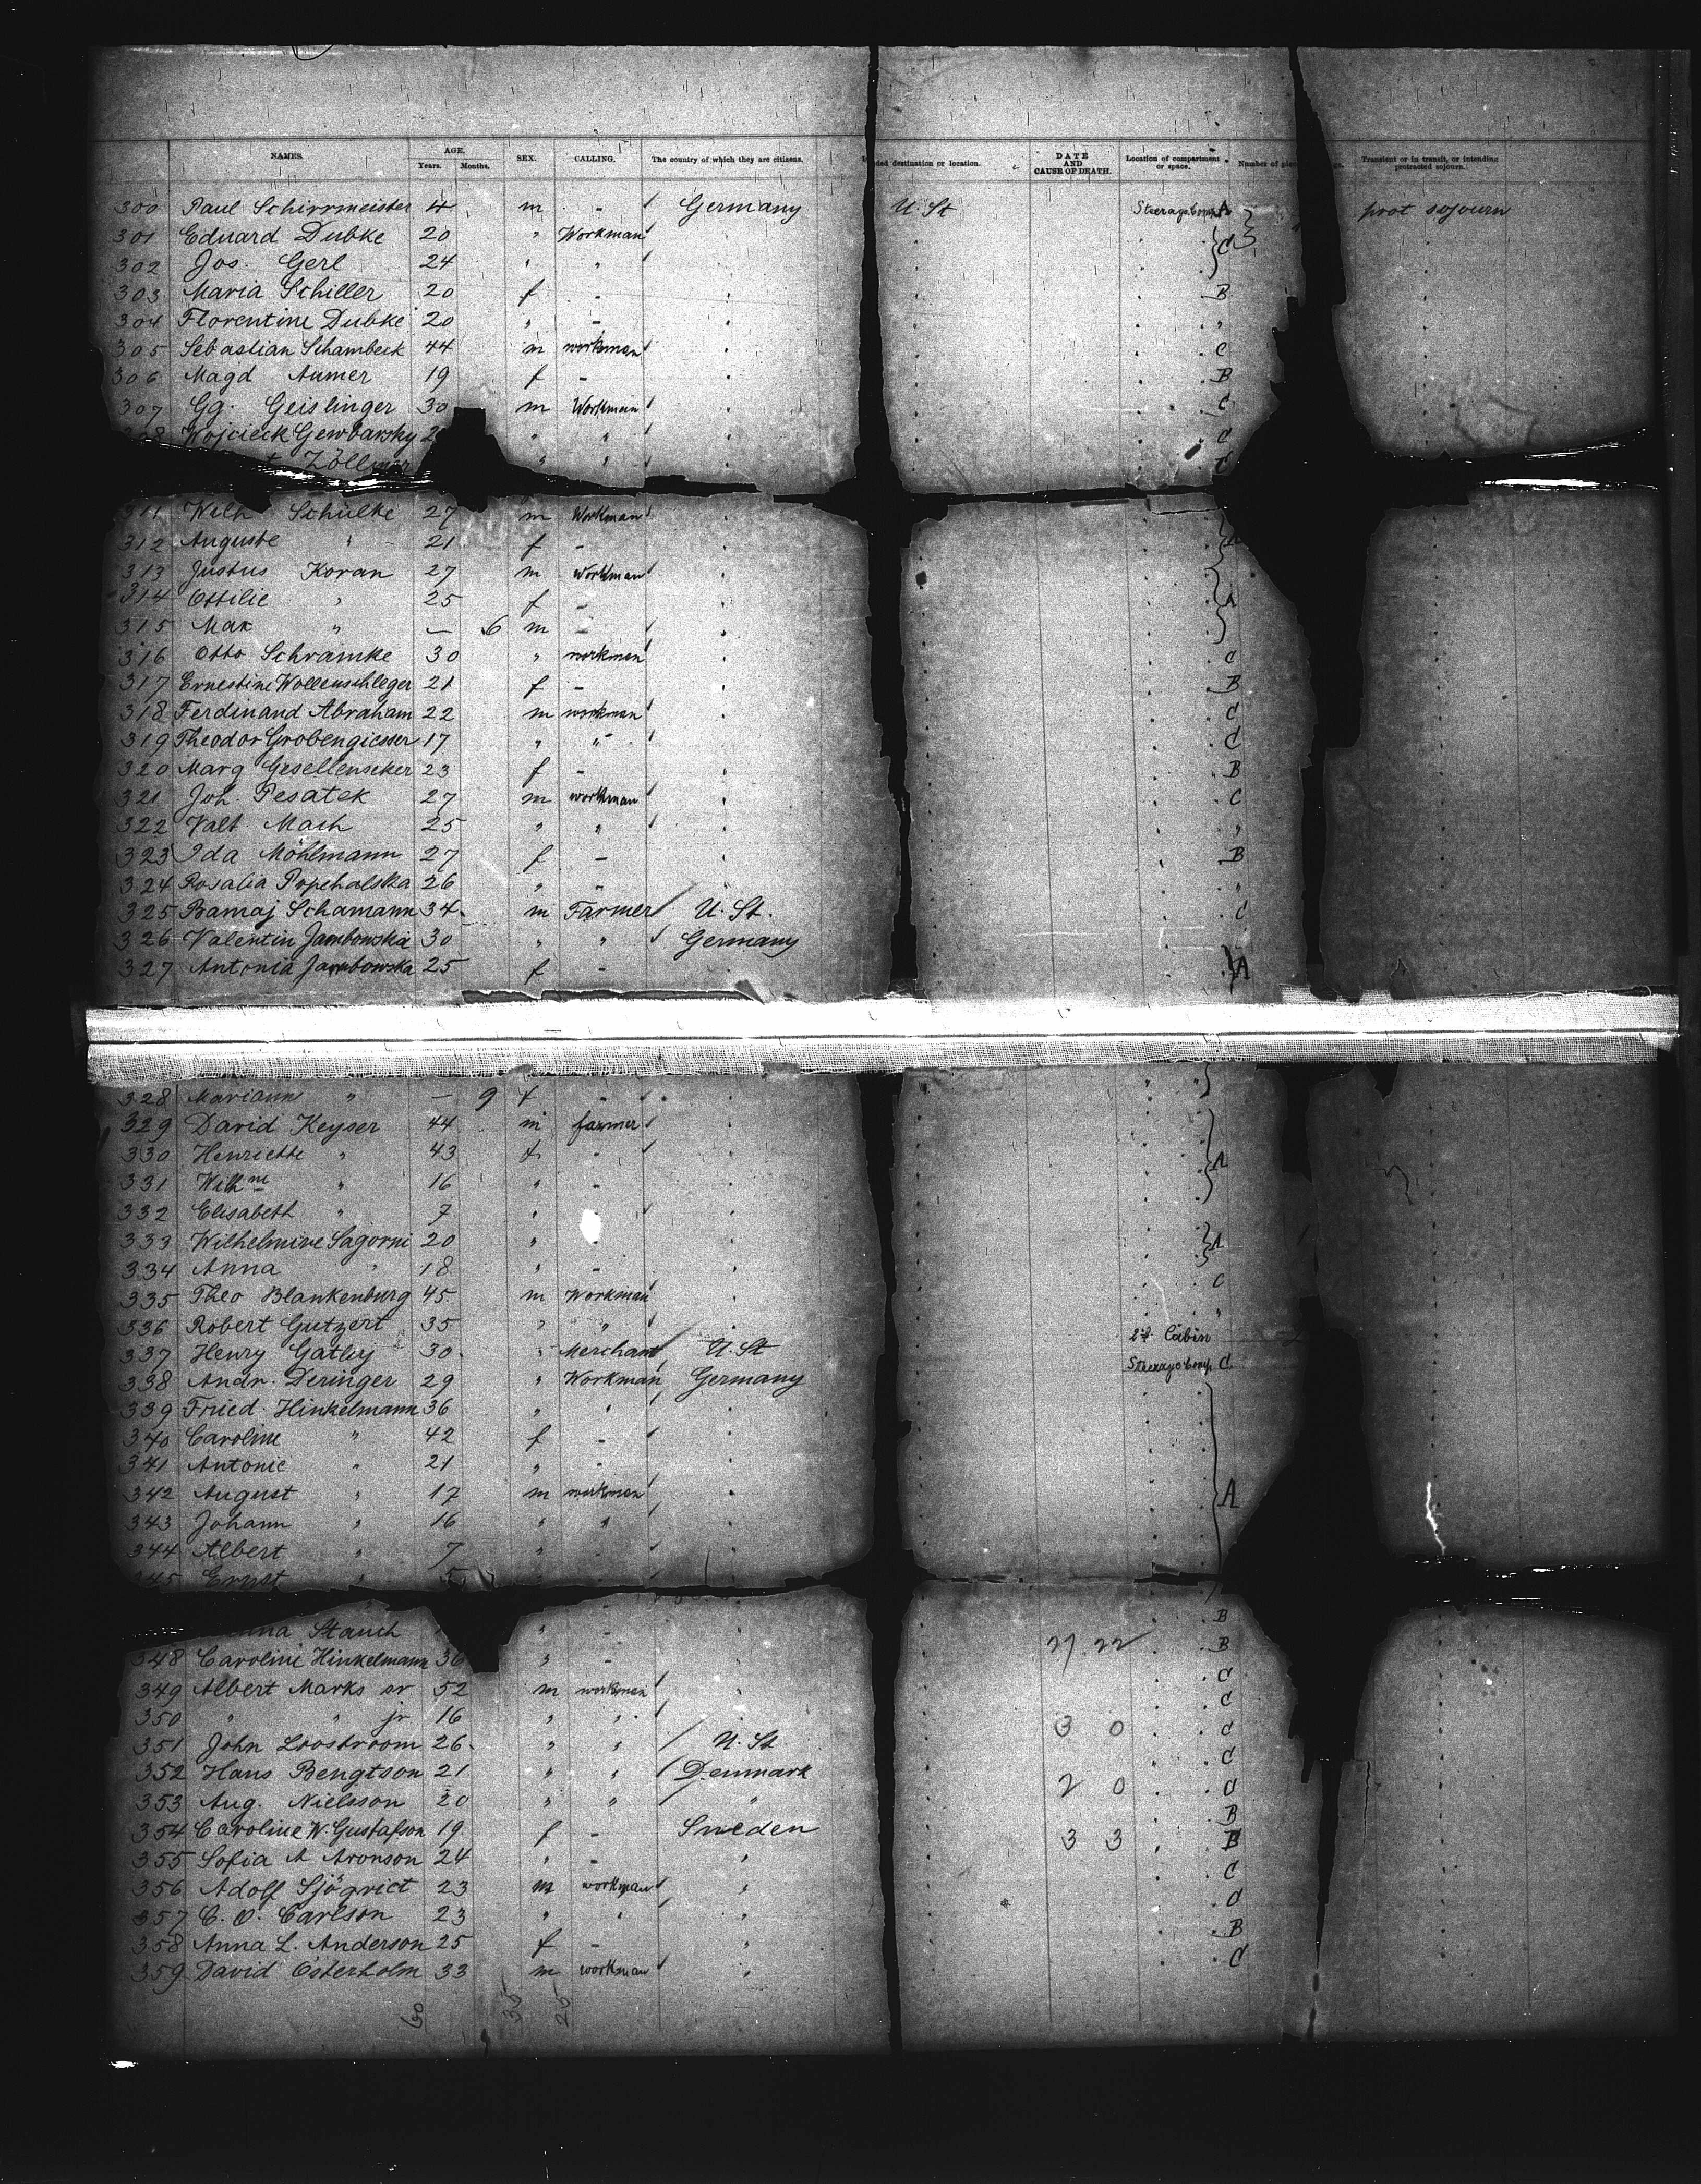 NAMES. AGE. Years. Months. SEX. CALLING. The country of which they are citizens. destination or location. DATE AND CAUSE OF DEATH. Location of compartment or space. Number of Transient or in transit, or intending protracted sojourn.
300 Paul Schirrmeister 4 m - Germany U. St Steerage Comp A prot sojourn
301 Eduard Dubke 20 " Workman C
302 Jos. Gerl 24 " "
303 Maria Schiller 20 f - B
304 Florentine Dubke 20 " - "
305 Sebastian Schambeck 44 m workman C
306 Magd Aumer 19 f - B
307 Gg. Geislinger 30 m Workman C
308 Wojcieck Gewbarsky " " C
Zöllner " " C
311 Wilh Schülke 27 m Workman
312 Auguste " 21 f -
313 Justus Koran 27 m Workman
314 Ottilie " 25 f - A
315 Max " - 6 m -
316 Otto Schramke 30 " workman C
317 Ernestine Wollenschleger 21 f - B
318 Ferdinand Abraham 22 m workman C
319 Theodor Grobengiesser 17 " " C
320 Marg Gesellenseker 23 f - B
321 Joh. Pesatek 27 m workman C
322 Valt. Mach 25 " " "
323 Ida Möhlmann 27 f - B
324 Rosalia Popehalska 26 " - "
325 Bamaj Schamann 34 m Farmer U. St. C
326 Valentin Jambowska 30 " " Germany
327 Antonia Jambowska 25 f - A
328 Mariann " - 9 f -
329 David Keyser 44 m farmer
330 Henriette " 43 f - A
331 Wilhne " 16 " -
332 Elisabeth " 7 "
333 Wilhelmine Sagorni 20 " A
334 Anna " 18 " -
335 Theo Blankenburg 45 m Workman C
336 Robert Gutzert 35 " " "
337 Henry Gatley 30 " Merchant U. St 2d Cabin
338 Andr. Deringer 29 " Workman Germany Steerage Comp. C
339 Fried. Hinkelmann 36 " "
340 Caroline " 42 f -
341 Antonie " 21 " -
342 August " 17 m workman A
343 Johann " 16 " "
344 Albert " 7 " -
345 Ernst " 5
Stauch " - B
348 Caroline Hinkelmann 36 " - 27 22 B
349 Albert Marks sr 52 m workman C
350 " " jr 16 " " C
351 John Loostroom 26 " " U. St 3 0 C
352 Hans Bengtson 21 " " Denmark C
353 Aug. Nielsson 20 " " " 2 0 C
354 Caroline W. Gustafson 19 f - Sweden B
355 Sofia A Aronson 24 " - " 3 3 B
356 Adolf Sjöqvict 23 m workman " C
357 C. O. Carlson 23 " " " C
358 Anna L. Anderson 25 f - " B
359 David Österholm 33 m workman " C
35 25